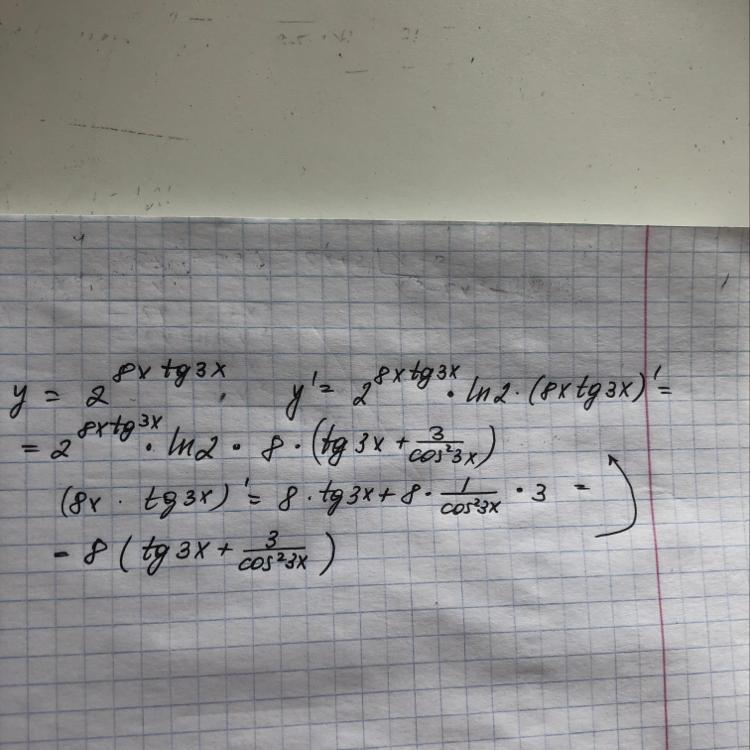 y = 2^{8x tg 3x} , y' = 2^{8x tg 3x} · ln2 · (8x tg 3x)' =
= 2^{8x tg 3x} · ln2 · 8 · (tg 3x + \frac{3}{cos²3x})
(8x · tg 3x)' = 8 · tg 3x + 8 · \frac{1}{cos²3x} · 3 =
= 8 (tg 3x + \frac{3}{cos²3x})